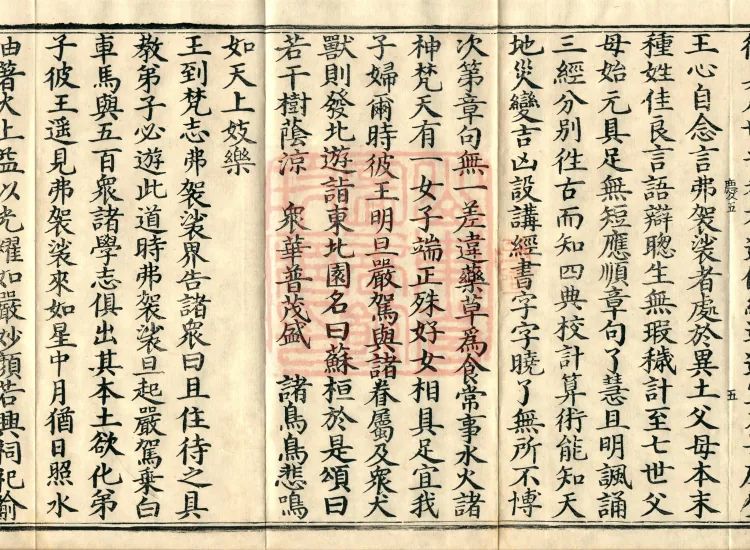 王心自念言弗袈裟者處於異土父母本末
種姓佳良言語辯聰生無瑕穢計至七世父
母始元具足無短應順章句了慧且明諷誦
三經分別徃古而知四典校計算術能知天
地災變吉凶設講經書字字曉了無所不博
次第章句無一差違藥草為食常事水火諸
神梵天有一女子端正殊好女相具足宜我
子婦爾時彼王明旦嚴駕與諸眷屬及衆犬
獸則發北遊詣東北園名曰蘇桓於是頌曰
若干樹蔭涼　衆華普茂盛　諸鳥鳥悲鳴
如天上妓樂
王到梵志弗袈裟界告諸衆曰且住待之具
教弟子必遊此道時弗袈裟旦起嚴駕乘白
車馬與五百衆諸學志俱出其本土欲化弟
子彼王遥見弗袈裟來如星中月猶日照水